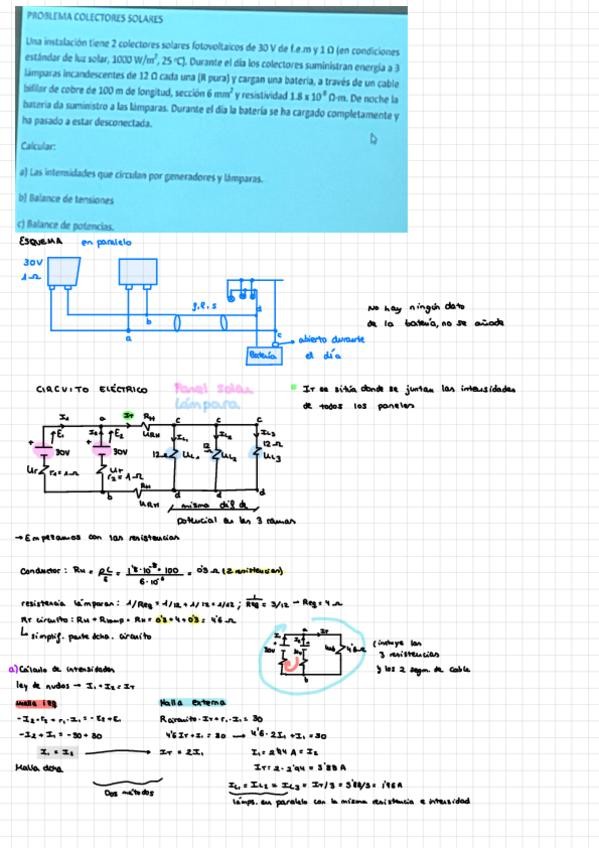 PROBLEMA COLECTORES SOLARES
Una instalación tiene 2 colectores solares fotovoltaicos de 30 V de f.e.m y 1 Ω (en condiciones
estándar de luz solar, 1000 W/m², 25 °C). Durante el día los colectores suministran energía a 3
lámparas incandescentes de 12 Ω cada una (R pura) y cargan una batería, a través de un cable
bifilar de cobre de 100 m de longitud, sección 6 mm² y resistividad 1.8 x 10⁻⁸ Ω·m. De noche la
batería da suministro a las lámparas. Durante el día la batería se ha cargado completamente y
ha pasado a estar desconectada.
Calcular:
a) Las intensidades que circulan por generadores y lámparas.
b) Balance de tensiones
c) Balance de potencias.
ESQUEMA en paralelo
30V
1 Ω
b
a
d
c
Batería
abierto durante
el día
No hay ningún dato
de la batería, no se añade
CIRCUITO ELÉCTRICO
Panel solar
lámpara
IT se sitúa donde se juntan las intensidades
de todos los paneles
I1 a IT RH c c c
E1 E2 IL1 IL2 IL3
30V 30V URH 12Ω UL1 UL2 UL3
Ur r1=1Ω Ur r2=1Ω
b RH d d d
URH
misma dif de
potencial en las 3 ramas
→ Empezamos con las resistencias
Conductor: RH = ρL/S = 1'8·10⁻⁸·100 / 6·10⁻⁶ = 0'3 Ω (2 resistencias)
resistencia lámparas: 1/Req = 1/12 + 1/12 + 1/12; 1/Req = 3/12 → Req = 4 Ω
RT circuito: RH + Rlamp + RH = 0'3 + 4 + 0'3 = 4'6 Ω
↳ simplif. parte dcha. circuito
a IT
30V 4'6Ω
(incluye las
3 resistencias
y los 2 segm. de cable
a) Cálculo de intensidades
ley de nudos → I1 + I2 = IT
Malla izq Malla externa
-I2·r2 + r1·I1 = -E2 + E1 Rcircuito·IT + r1·I1 = 30
-I2 + I1 = -30 + 30 4'6 IT + I1 = 30 → 4'6·2I1 + I1 = 30
I1 = I2 → IT = 2I1 I1 = 2'94 A = I2
Malla dcha IT = 2·2'94 = 5'88 A
Dos métodos
IL1 = IL2 = IL3 = IT/3 = 5'88/3 = 1'96 A
lámps. en paralelo con la misma resistencia e intensidad